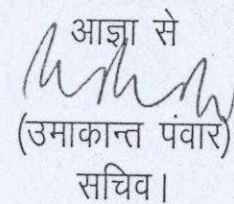 आज्ञा से
(उमाकान्त पंवार)
सचिव।